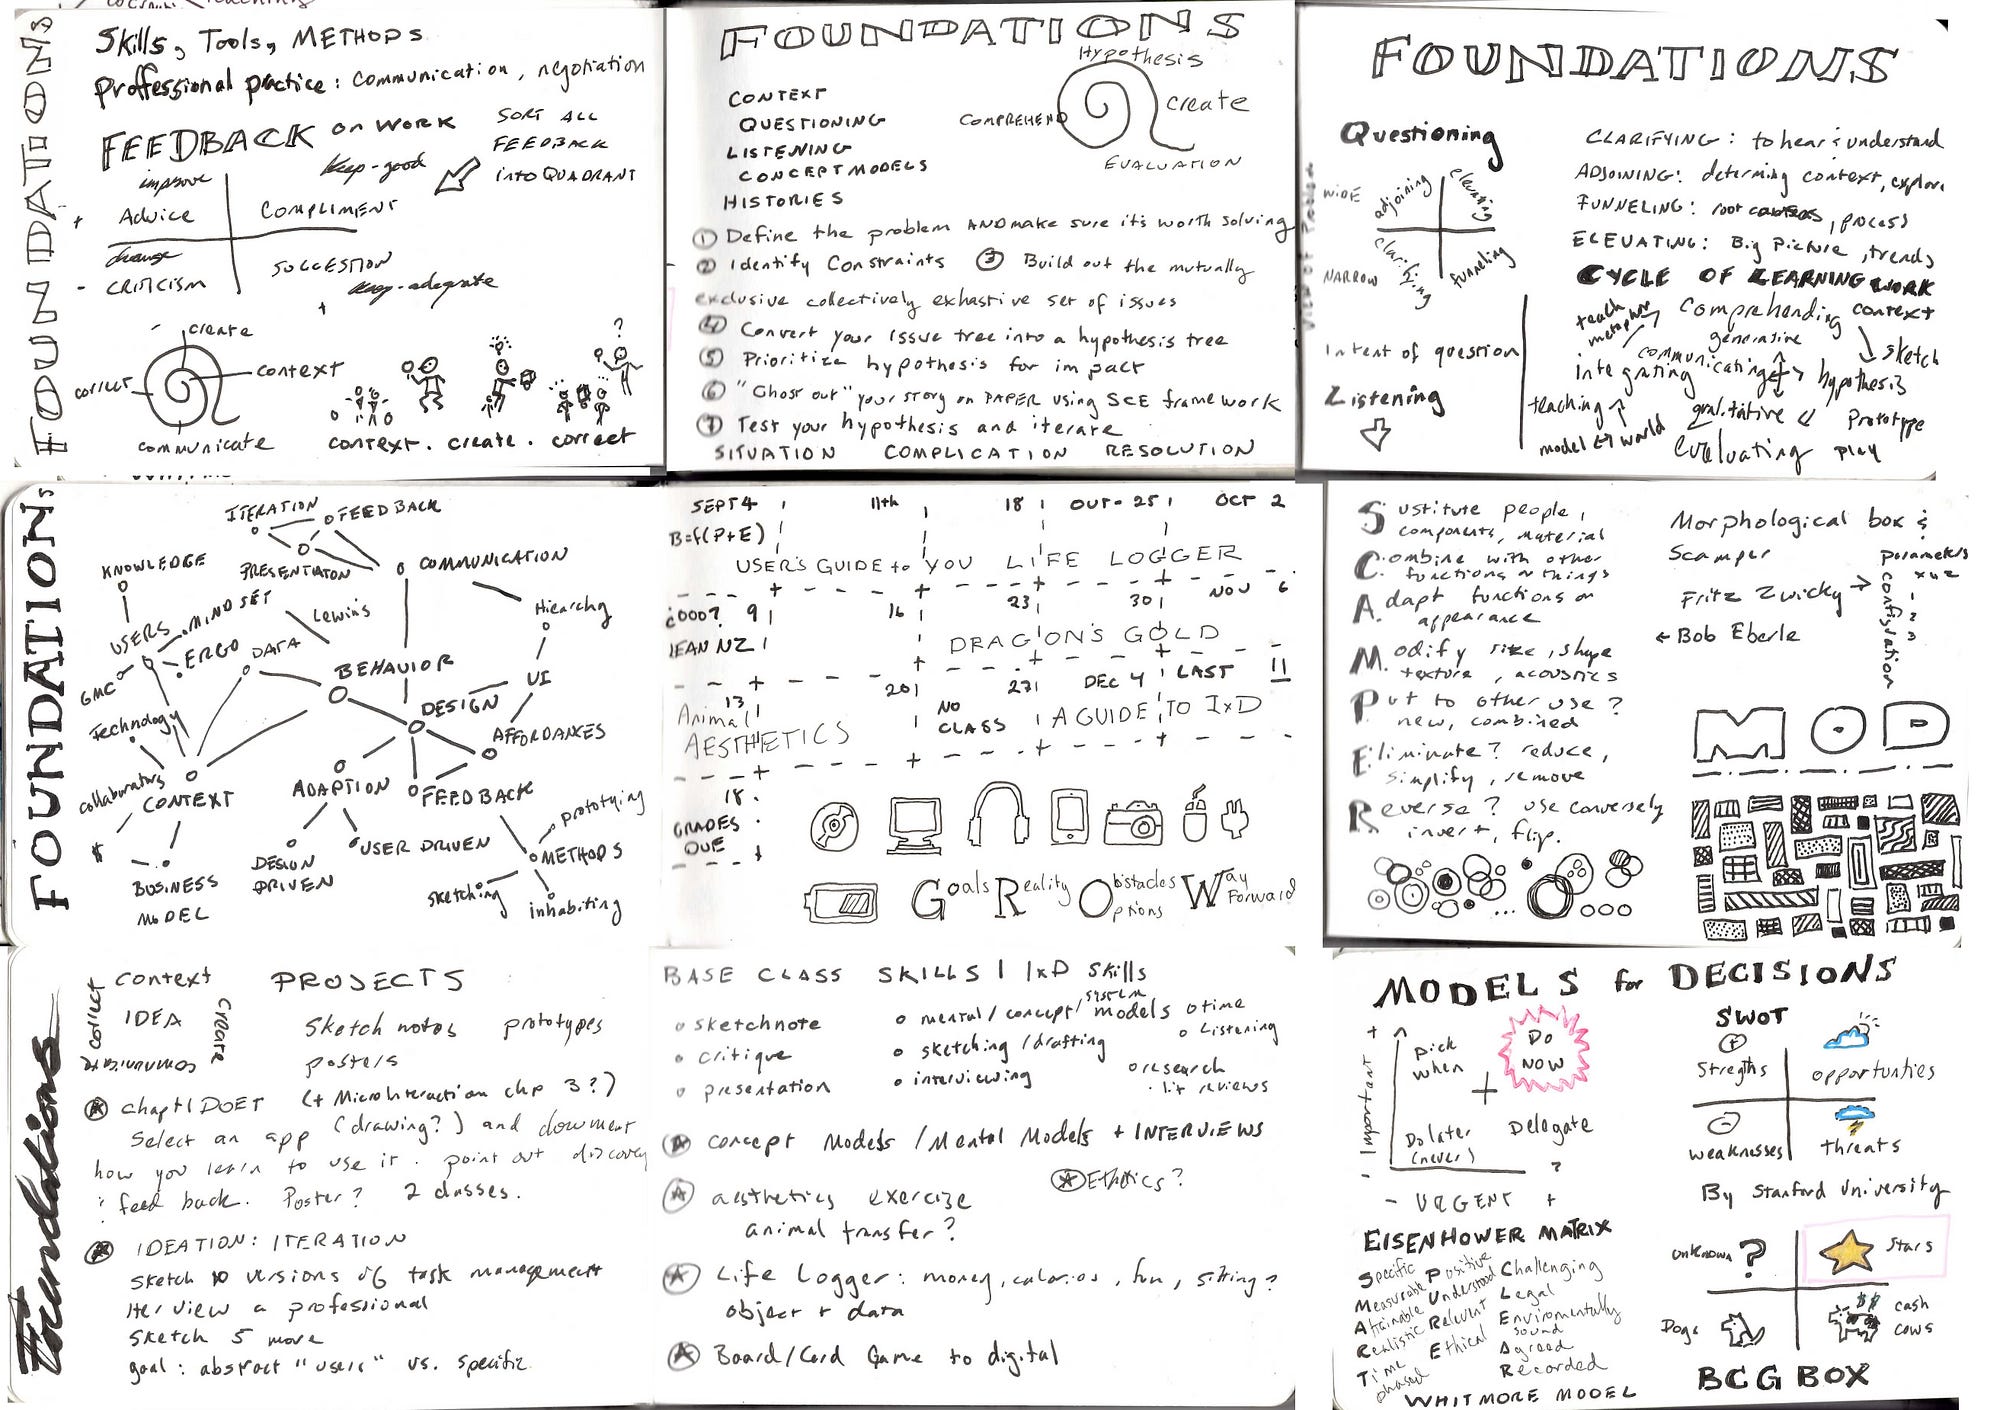 FOUNDATIONS
Skills, Tools, METHODS
Proffessional practice: communication, negotiation
FEEDBACK on WORK
SORT ALL
FEEDBACK
into QUADRANT
improve
Keep-good
+ Advice
COMPLIMENT
change
- CRITICISM
SUGGESTION
Keep-adequate
+
create
context
correct
communicate
?
context. create. correct
FOUNDATIONS
Hypothesis
create
COMPREHEND
EVALUATION
CONTEXT
QUESTIONING
LISTENING
CONCEPT MODELS
HISTORIES
1 Define the problem AND make sure it's worth solving
2 Identify Constraints 3 Build out the mutually
exclusive collectively exhastive set of issues
4 Convert your issue tree into a hypothesis tree
5 Prioritize hypothesis for impact
6 "Ghost out" your story on PAPER using SCE framework
7 Test your hypothesis and iterate
SITUATION COMPLICATION RESOLUTION
FOUNDATIONS
Questioning
View of Problem
WIDE
NARROW
adjoining
elevating
clarifying
funneling
Intent of question
Listening
CLARIFYING: to hear & understand
ADJOINING: determing context, explore
FUNNELING: root causes, process
ELEVATING: Big Picture, trends
CYCLE OF LEARNING WORK
teach
metaphor
Comprehending
context
generative
communicating
sketch
integrating
hypothesis
teaching
qualitative
Prototype
model ↔ world
evaluating
play
FOUNDATIONS
ITERATION
FEEDBACK
KNOWLEDGE
PRESENTIATON
COMMUNICATION
MINDSET
Lewin's
Hierarchy
USERS
ERGO
DATA
BEHAVIOR
GMC
UI
DESIGN
Technology
AFFORDANCES
collaborators
CONTEXT
ADAPTION
FEEDBACK
prototyping
$
DESIGN
DRIVEN
USER DRIVEN
METHODS
BUSINESS
MODEL
sketching
inhabiting
SEPT 4 11th 18 OUT- 25 OCT 2
B=f(P+E)
USER'S GUIDE to YOU LIFE LOGGER
¿OOO? 9 16 23 30 NOV 6
LEAN NZ
DRAGON'S GOLD
13 20 27 DEC 4 LAST 11
Animal
AESTHETICS
NO
CLASS
A GUIDE TO IxD
18.
GRADES
DUE
Goals Reality Obstacles Way
Options Forward
Sustitute people,
components, material
Combine with other
functions or things
Adapt functions or
appearance
Modify size, shape
texture, acoustics
Put to other use?
new, combined
Eliminate? reduce,
simplify, remove
Reverse? use conversely
invert, flip.
...
Morphological box &
Scamper
parameters
x y z
Fritz Zwicky →
configuration
1
2
3
← Bob Eberle
MOD
Foundations
collect
Context
IDEA
create
PROJECTS
Sketch notes prototypes
posters
chapt 1 DOET (+ MicroInteraction chp 3?)
Select an app (drawing?) and document
how you learn to use it. point out discovery
& feed back. Poster? 2 classes.
IDEATION: ITERATION
sketch 10 versions of task management
Iterview a professional
sketch 5 more
goal: abstract "users" vs. specific
BASE CLASS SKILLS | IxD Skills
sketchnote
critique
presentation
system
mental/concept/models
sketching/drafting
interviewing
time
Listening
research
lit reviews
concept Models/Mental Models + INTERVIEWS
aesthetics exercize
animal transfer?
Ethics?
Life logger: money, calories, fun, sitting?
object + data
Board/Card Game to digital
MODELS for DECISIONS
+
Important
-
pick
when
DO
NOW
Do later
(never)
Delegate
?
- URGENT +
EISENHOWER MATRIX
Specific Positive Challenging
Measurable Understood Legal
Attainable Relevent Enviromentally
sound
Realistic Ethical Agreed
Time Recorded
phased
WHITMORE MODEL
SWOT
+
Stregths
opportunties
-
weaknesses
threats
By Stanford University
unknown ?
Stars
Dogs
$$
cash
cows
BCG BOX